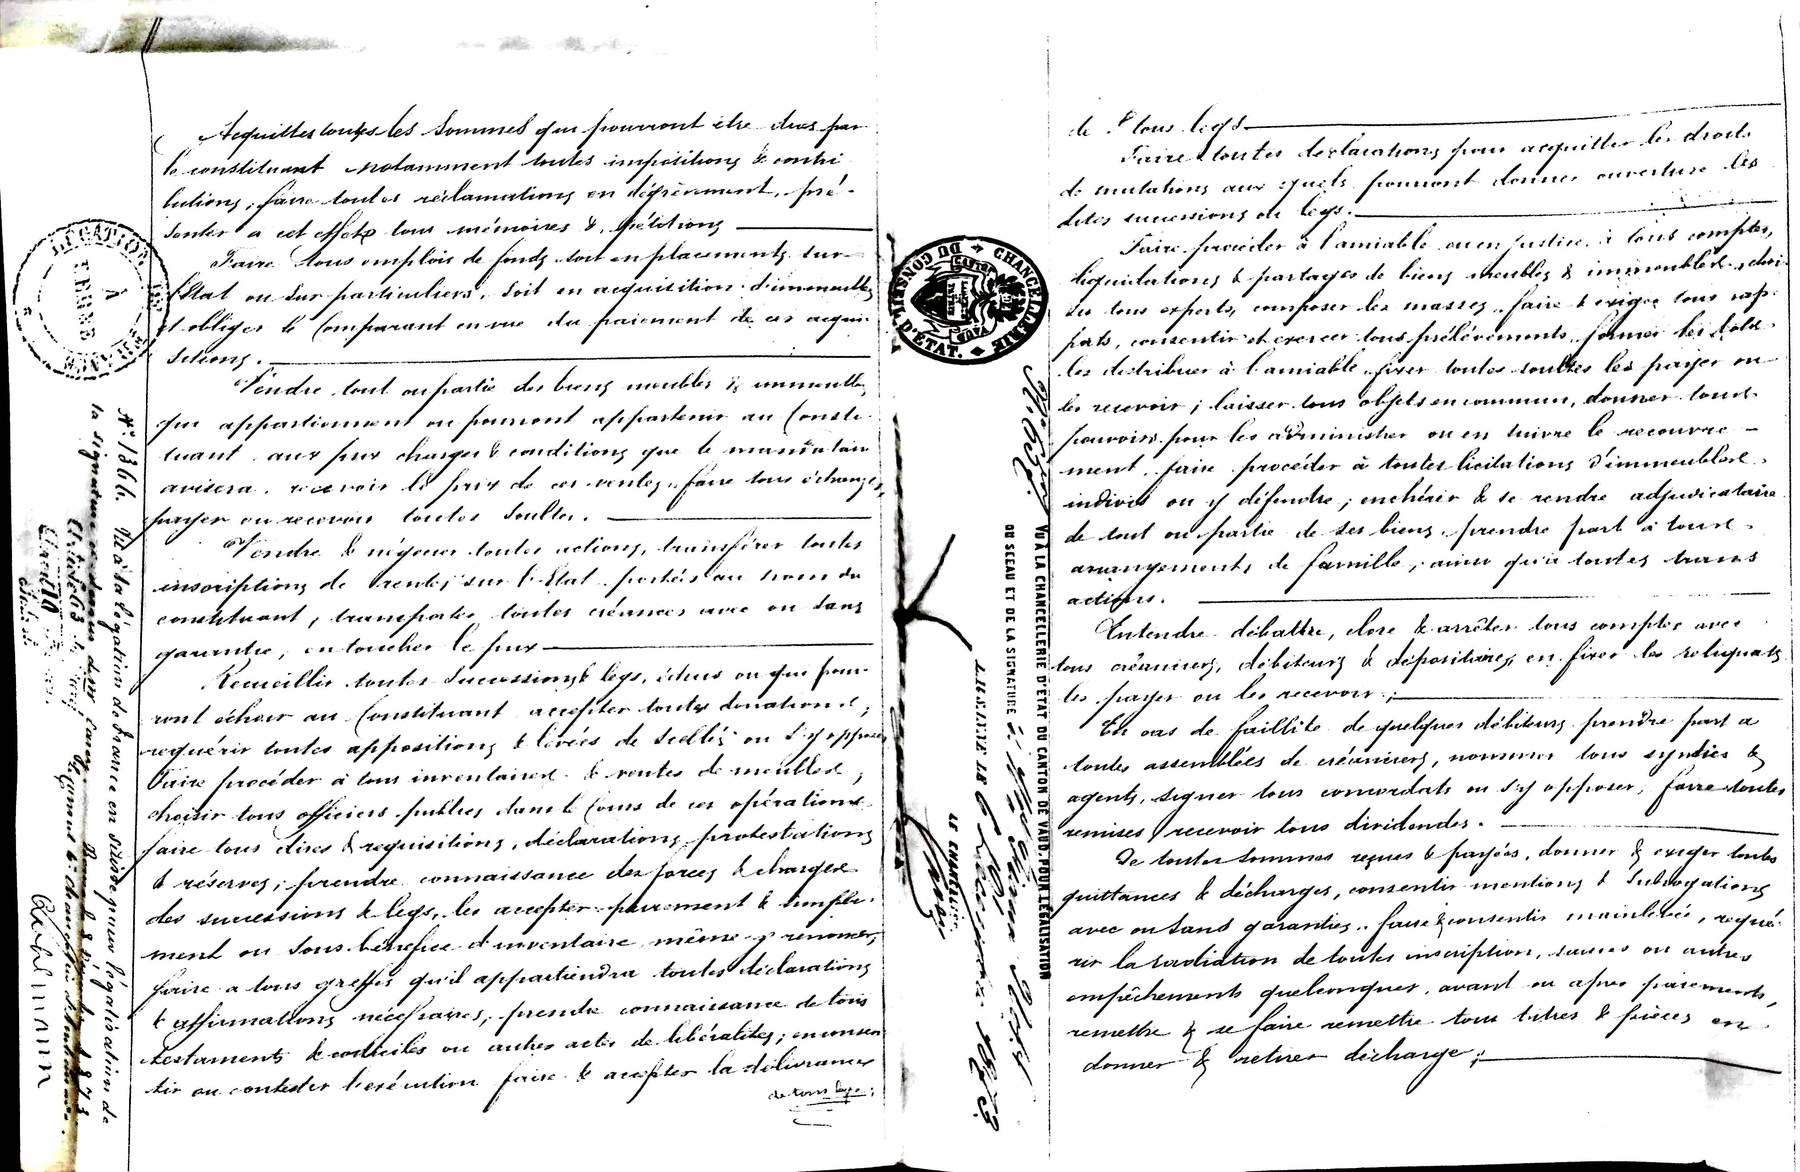 Acquitter toutes les sommes qui pourront être dues par
le constituant notamment toutes impositions & contri
butions; faire toutes réclamations en dégrèvement, pré-
senter a cet effet tous mémoires & pétitions
Faire tous emplois de fonds soit en placements sur
l'Etat ou sur particuliers, soit en acquisition d'immeubles
et obliger le Comparant en vue du paiement de ces acqui
sitions.
Vendre tout ou partie des biens meubles & immeubles
qui appartiennent ou pourront appartenir au Consti-
tuant aux prix charges & conditions que le mandataire
avisera. recevoir le prix de ces ventes, faire tous échanges,
payer ou recevoir toutes soultes.
Vendre & négocier toutes actions, transférer toutes
inscriptions de rentes sur l'Etat portées au nom du
constituant, transporter toutes créances avec ou sans
garantie, en toucher le prix
Recueillir toutes successions & legs, échus ou qui pour-
ront échoir au Constituant accepter toutes donations;
requérir toutes appositions & levées de scellés ou s'y opposer
Faire procéder à tous inventaires & ventes de meubles;
choisir tous officiers publics dans le cours de ces opérations
faire tous dires & requisitions, déclarations, protestations
& réserves; prendre connaissance des forces & charges
des successions & legs, les accepter purement & simple-
ment ou sous bénéfice d'inventaire même y renoncer,
faire a tous greffes qu'il appartiendra toutes déclarations
& affirmations nécessaires, prendre connaissance de tous
testaments & codiciles ou autres actes de libéralités; en consen
tir ou contester l'exécution faire & accepter la délivrance
de tous legs;
LÉGATION DE FRANCE EN SUISSE
À BERNE
No. 1366. Vu à la légation de France en Suisse pour légalisation de
la signature
CHANCELLERIE DU CONSEIL D'ÉTAT.
CANTON DE VAUD
LIBERTÉ ET PATRIE
VU À LA CHANCELLERIE D'ÉTAT DU CANTON DE VAUD, POUR LÉGALISATION
DU SCEAU ET DE LA SIGNATURE
LAUSANNE LE 6 1873
LE CHANCELIER
de tous legs
Faire toutes déclarations pour acquitter les droits
de mutations aux quels pourront donner ouverture les
dites successions ou legs.
Faire procéder à l'amiable ou en justice à tous comptes,
liquidations & partages de biens meubles & immeubles, choi
sir tous experts, composer les masses, faire & exiger tous rap
ports, consentir et exercer tous prélévements, former les lots
les distribuer à l'amiable, fixer toutes soultes les payer ou
les recevoir; laisser tous objets en commun, donner tous
pouvoirs pour les administrer ou en suivre le recouvre-
ment, faire procéder à toutes licitations d'immeubles
indivis ou y défendre; enchérir & se rendre adjudicataire
de tout ou partie de ses biens, prendre part à tous
arrangements de famille, ainsi qu'à toutes trans
actions.
Entendre débattre, clore & arrêter tous comptes avec
tous créanciers, débiteurs & dépositaires, en fixer les reliquats
les payer ou les recevoir;
En cas de faillite de quelques débiteurs prendre part a
toutes assemblées de créanciers, nommer tous syndics &
agents, signer tous concordats ou s'y opposer, faire toutes
remises, recevoir tous dividendes.
De toutes sommes reçues & payées, donner & exiger toutes
quittances & décharges, consentir mentions & subrogations
avec ou sans garanties, faire & consentir mainlevée, requé-
rir la radiation de toutes inscription, saisies ou autres
empêchements quelconques, avant ou apres paiements,
remettre & se faire remettre tous titres & pièces en
donner & retirer décharge;